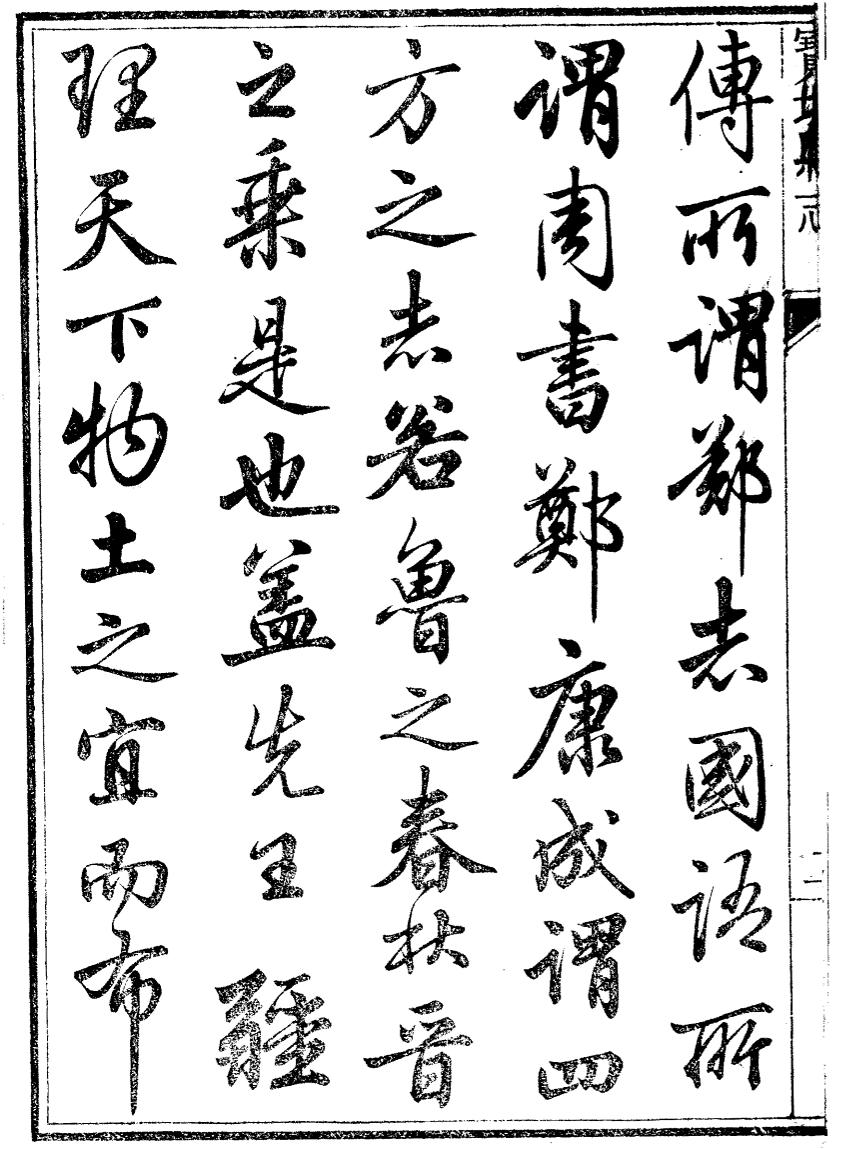 傳所謂鄭志國語所
謂周書鄭康成謂四
方之志若魯之春秋晉
之乗是也盖先王疆
理天下物土之宜而布